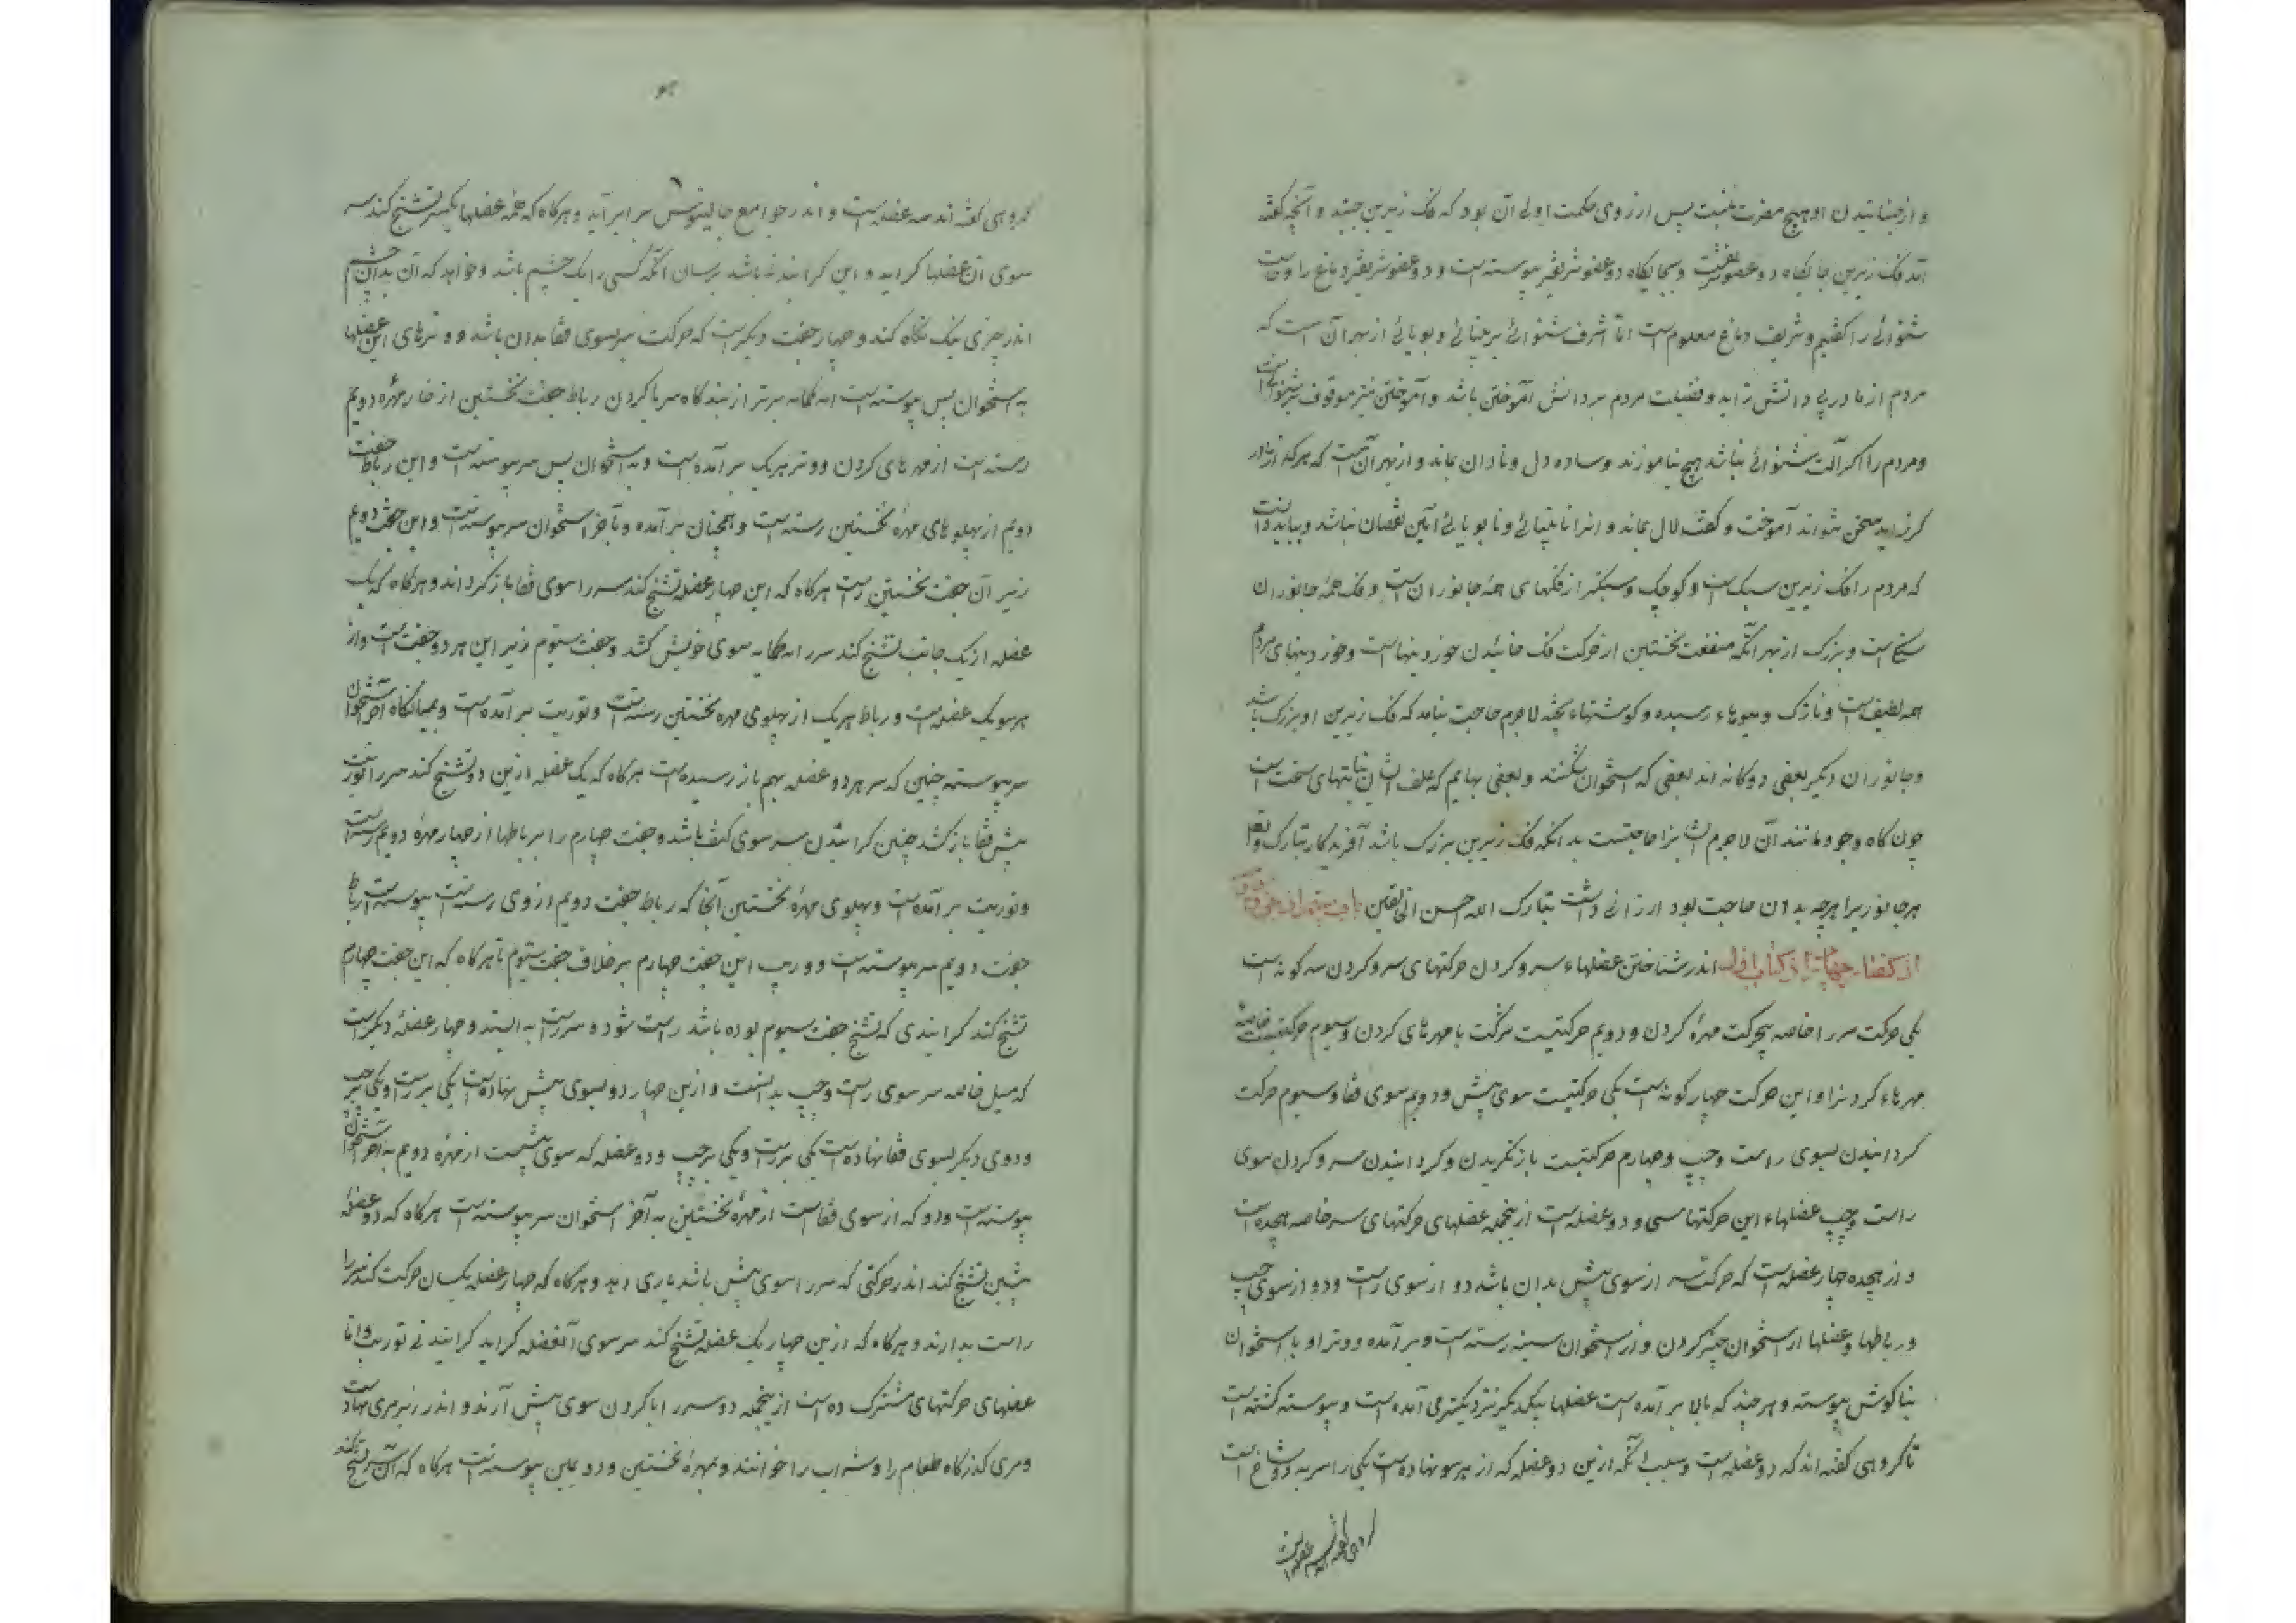 و از جنبانیدن او هیچ مضرت نیست پس از روی حکمت اولی آن بود که فک زیرین جنبد و آنچه گفته
اند فک زیرین جایگاه دو عضو شریفست و بجایگاه دو عضو شریف پیوسته است و دو عضو شریف دماغ را و
شنوائی را گفتیم و شریف دماغ معلوم است اما شرف شنوائی بر بینائی و بویائی از بهر آن است که
مردم از مادر بی دانش زاید و فضیلت مردم بر دانش آموختن باشد و آموختن نیز موقوف بر شنوائی است
و مردم را اگر آلت شنوائی نباشد هیچ نیاموزند و ساده دل و نادان بماند و از بهر آنست که هر که از مادر
کر زاید سخن نتواند آموخت و گفت لال بماند و اندر نابینائی و نابویائی این نقصان نباشد و بباید دانست
که مردم را فک زیرین سبک است و کوچک و سبکتر از فکهای همه جانوران است و فک همه جانوران
است و بزرگ از بهر آنکه منفعت نخستین از حرکت فک خائیدن خوردنیهاست و خوردنیهای مردم
همه لطیف است و نازک و میوهاء رسیده و گوشتهاء پخته لاجرم حاجت نیامد که فک زیرین او بزرگ باشد
و جانوران دیگر بعضی دوگانه اند بعضی که استخوان شکنند و بعضی بهایم که علف ایشان نباتهای سخت است
چون کاه و جو و مانند آن لاجرم ایشانرا حاجتست بدانکه فک زیرین بزرگ باشد آفریدگار تبارک و تعالی
هر جانوریرا هرچه بدان حاجت بود ارزانی داشت تبارک الله احسن الخالقین باب
از گفتار چهارم از کتاب اول اندر شناختن عضلهاء سر و گردن حرکتهای سر و گردن سه گونه است
یکی حرکت سر را خاصه بیحرکت مهرهٔ گردن و دویم حرکتیست مشرکت با مهرهای گردن و سیوم حرکتیست خاصه
مهرهاء گردنرا و این حرکت چهار گونه است یکی حرکتیست سوی پیش و دویم سوی قفا و سیوم حرکت
گردانیدن بسوی راست و چپ و چهارم حرکتیست بازنگریدن و گردانیدن سر و گردن سوی
راست و چپ عضلهاء این حرکتها سی و دو عضله است ازینجمله عضلهای حرکتهای سر خاصه هجده است
و از هجده چهار عضله است که حرکت سر از سوی پیش بدان باشد دو از سوی راست و دو از سوی چپ
و رباطها و عضلها از استخوان چنبر گردن و از استخوان سینه رسته است و برآمده و وتر او با استخوان
بناگوش پیوسته و هر چند که بالا برآمده است عضلها بیکدیگر نزدیکتر می آمده است و پیوسته گشته است
تا گروهی گفته اند که دو عضله است و سبب آنکه ازین دو عضله که از هر سو نهاده است یکی را سر به دو شاخ است
گروهی گفته اند سه عضله است
گروهی گفته اند سه عضله است و اندر جوامع جالینوس سر برابر آید و هرگاه که همه عضلها یکسر تشنج کند سر
سوی آن عضلها گراید و این گرایندنی باشد برسان آنکه کسی را یک چشم باشد و خواهد که آن بدان چشم
اندر چیزی نیک نگاه کند و چهار جفت دیگر است که حرکت سر سوی قفا بدان باشد و وترهای این عضلها
به استخوان پس پیوسته است برتر از بندگاه سر با گردن رباط جفت نخستین از خار مهرهٔ دویم
رسته است از مهرهای گردن و وتر هر یک برآمده است و به استخوان پس سر پیوسته است و این رباط جفت
دویم از پهلوهای مهرهٔ نخستین رسته است و همچنان برآمده و بآخر استخوان سر پیوسته است و این جفت دویم
زیر آن جفت نخستین است هرگاه که این چهار عضله تشنج کند سر را سوی قفا باز گرداند و هرگاه که یک
عضله از یک جانب تشنج کند سر را سوی خویش کشد و جفت سیوم زیر این هر دو جفت است و از
هر سو یک عضله است و رباط هر یک از پهلوی مهرهٔ نخستین رسته است و توریب برآمده است و بمیانگاه آخر استخوان
سر پیوسته چنین که سر هر دو عضله بهم باز رسیده است هرگاه که یک عضله ازین دو تشنج کند سر را توریب
پیش قفا باز کشد چنین گرائیدن سر سوی کتف باشد و جفت چهارم را سر رباطها از چهار مهرهٔ دویم رسته است
و توریب برآمده است و پهلوی مهرهٔ نخستین آنجا که رباط جفت دویم از وی رسته است پیوسته است از رباط
جفت دویم سر پیوسته است و وریب این جفت چهارم برخلاف جفت سیوم تا هرگاه که این جفت چهارم
تشنج کند گرایندی که تشنج جفت سیوم بوده باشد راست شود و سر راست به ایستد و چهار عضلهٔ دیگر است
که میل خاصه سر سوی راست و چپ بدانست و ازین چهار دو بسوی پیش نهاده است یکی بر راست و یکی بر چپ
و دوی دیگر بسوی قفا نهاده است یکی بر راست و یکی بر چپ و دو عضله که سوی پیش است از مهرهٔ دویم به آخر استخوان
پیوسته است و دو که از سوی قفاست از مهرهٔ نخستین به آخر استخوان سر پیوسته است هرگاه که دو عضلهٔ
پیشین تشنج کند اندر حرکتی که سر را سوی پیش باشد یاری دهد و هرگاه که چهار عضله یکسان حرکت کند سر را
راست بدارند و هرگاه که ازین چهار یک عضله تشنج کند سر سوی آن عضله گراید گرایندنی توریب و اما
عضلهای حرکتهای مشترک ده است ازینجمله دو سر را با گردن سوی پیش آرند و اندر زیر مری نهاده است
و مری گذرگاه طعام را و شراب را خوانند و بمهرهٔ نخستین و دویمین پیوسته است هرگاه که آن تشنج کند